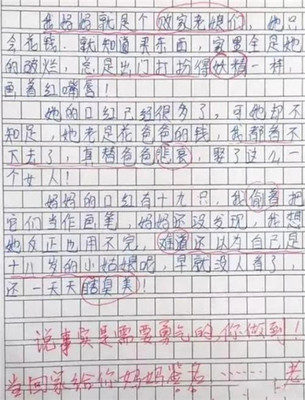 我妈妈就是个败家老娘们，她只
会花钱，就知道买东西，家里全是她
的破烂，总是出门打扮得妖精一样，
画着红嘴唇！
她的口红已经很多了，可她却不
知足，她老是花爸爸的钱，我都看不
下去了！真替爸爸悲哀，娶了这么一
个女人！
妈妈的口红有十九只，我偷着把
它们当作画笔，妈妈还没发现，我想
她反正也用不完，难道还以为自己是
十八岁的小姑娘呢，早就没人看了
还一天天臭美！
说事实是需要勇气的，你做到！
当回家给你妈妈签名……老